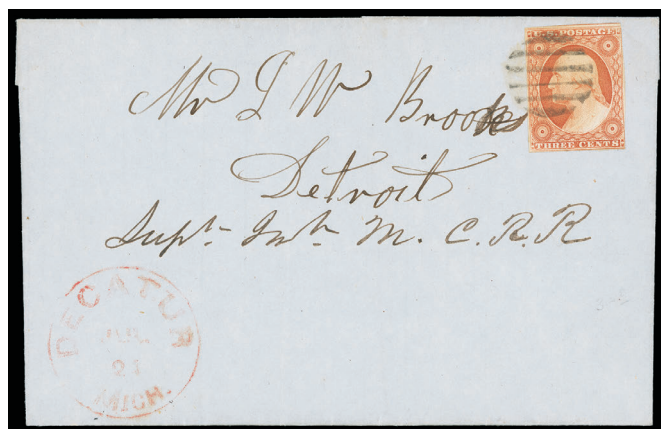 U.S. POSTAGE
THREE CENTS
Mr J W Brooks
Detroit
Supt. M. C. R. R
DECATUR
21
MICH.